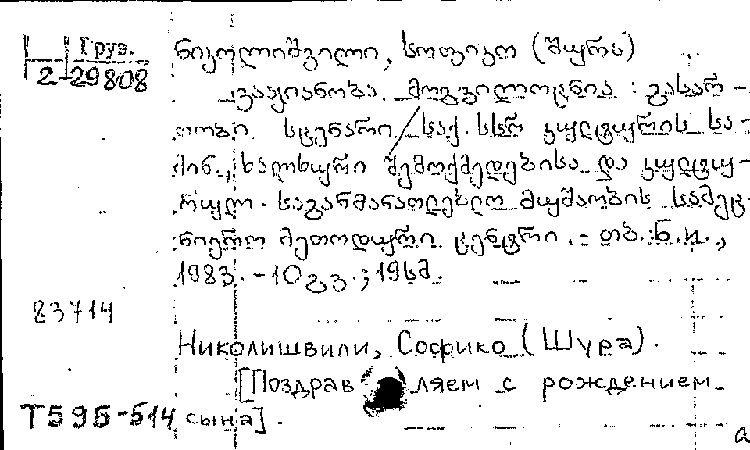 Груз.
2-29808
ნიკოლიშვილი, სოფიკო (შურა)
ვაჟიანობა მოგვილოცნია : გასარ-
თობი სცენარი / საქ. სსრ კულტურის სა-
მინ., ხალხური შემოქმედებისა და კულტუ-
რულ-საგანმანათლებლო მუშაობის სამეც-
ნიერო მეთოდური ცენტრი. - თბ. ბ. ი.,
1983. - 10 გვ. ; 19 სმ.
83714
Николишвили, Софико (Шура).
[Поздравляем с рождением
Т59Б-514 сына].